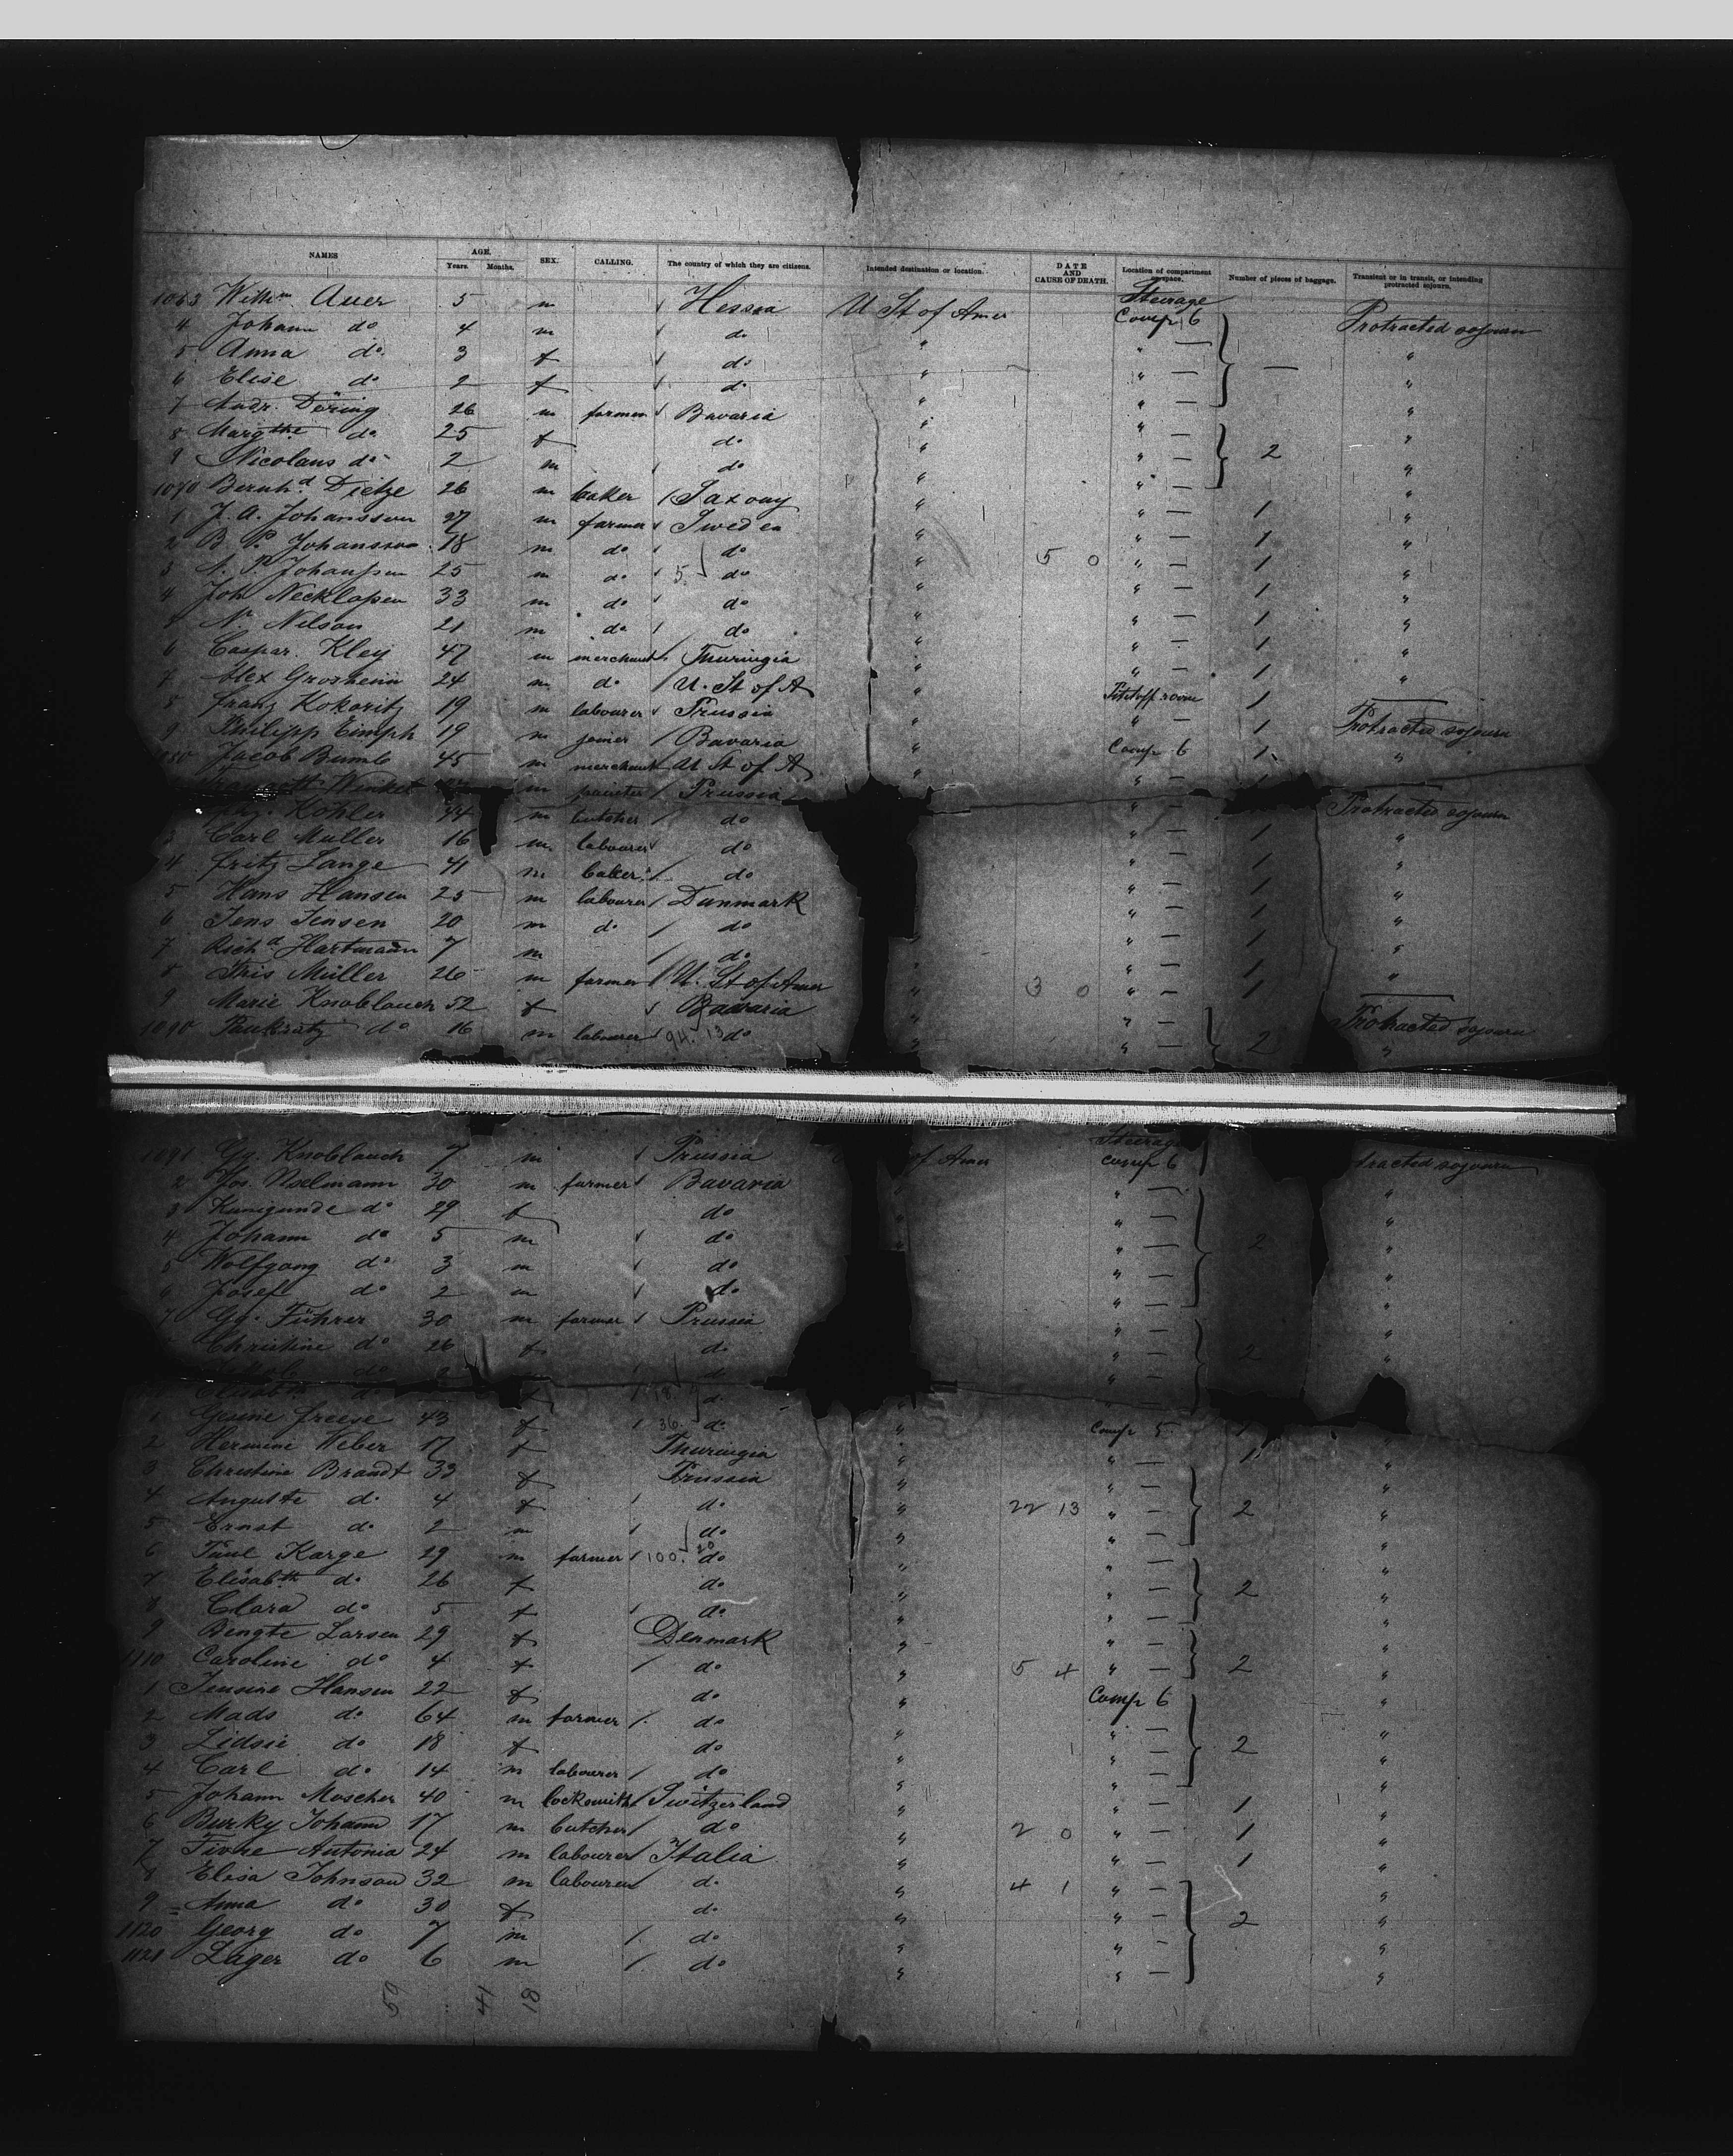 NAMES AGE. Years. Months. SEX. CALLING. The country of which they are citizens. Intended destination or location. DATE AND CAUSE OF DEATH. Location of compartment or space. Number of pieces of baggage. Transient or in transit, or intending protracted sojourn.
1063 Willm Auer 5 m Hessia U St of Amer Steerage Comp 6 Protracted sojourn
4 Johann do 4 m do " " — "
5 Anna do 3 f do " " — — "
6 Elise do 2 f do " " — "
7 Andr. Döring 26 m farmer Bavaria " " — "
8 Margthe do 25 f do " " — 2 "
9 Nicolaus do 2 m do " " — "
1070 Bernhd Dietze 26 m baker Saxony " " — 1 "
1 J. A. Johansson 27 m farmer Sweden " " — 1 "
2 B. P. Johansson 18 m do do " 5 0 " — 1 "
3 N. P. Johansson 25 m do 5 do " " — 1 "
4 Joh Necklapen 33 m do do " " — 1 "
N. Nilson 21 m do do " " — 1 "
6 Caspar Kley 47 m merchant Thuringia " " — 1 "
7 Alex Grosheim 24 m do U. St of A " 1 —
8 Franz Kokoritz 19 m labourer Prussia " " — 1 Protracted sojourn
9 Philipp Eimph 19 m joiner Bavaria " Comp 6 1 "
1080 Jacob Bumb 45 m merchant U St of A " — —
Winkel m painter Prussia " — Protracted sojourn
Kohler 44 m butcher do " — 1 "
3 Carl Muller 16 m labourer do " — 1 "
4 Fritz Lange 41 m baker do " — 1 "
5 Hans Hansen 25 m labourer Danmark " — 1 "
6 Jens Jensen 20 m do do " — 1 "
7 Richd Hartmann 7 m do " " — 1 "
8 Fris Müller 26 m farmer U. St of Amer " 3 0 " — 1 —
9 Marie Knoblauch 52 f Bavaria " " — Protracted sojourn
1090 Pankratz do 16 m labourer 94. 13 do " " — 2 "
1091 Gg. Knoblauch 7 m Prussia of Amer Steerage Comp 6 tracted sojourn
2 Jos. Noelmann 30 m farmer Bavaria " " — "
3 Kunigunde do 29 f do " — "
4 Johann do 5 m do " — 2 "
5 Wolfgang do 3 m do " — "
6 Josef do 2 m do " — "
7 Gg. Führer 30 m farmer Prussia " — "
Christine do 26 f do " — 2 "
do do " —
Elisabth do f 18 9 do " —
1 Gesine Freese 43 f 36. do " Comp 5 1
2 Hermine Weber 17 f Thuringia " " — 1 "
3 Christine Brandt 33 f Prussia " " — "
4 Auguste do 4 f do " 22 13 " — 2 "
5 Ernst do 2 m do " " — "
6 Paul Karge 29 m farmer 100. 20 do " " — "
7 Elisabth do 26 f do " " — 2 "
8 Clara do 5 f do " " — "
9 Bengte Larsen 29 f Denmark " " — "
1110 Caroline do 4 f do " 5 4 " — 2 "
1 Jensine Hansen 22 f do " Comp 6 "
2 Mads do 64 m farmer do " " — "
3 Lidsie do 18 f do " " — 2 "
4 Carl do 14 m labourer do " " — "
5 Johann Moscher 40 m locksmith Switzerland " " — 1 "
6 Burky Johann 17 m butcher do " 2 0 " — 1 "
7 Fivre Antonia 24 m labourer Italia " " — 1 "
8 Elisa Johnson 32 m labourer do " 4 1 " — "
9 Anna do 30 f do " " — 2 "
1120 Georg do 7 m do " " — "
1121 Lager do 6 m do " " — "
59 41 18